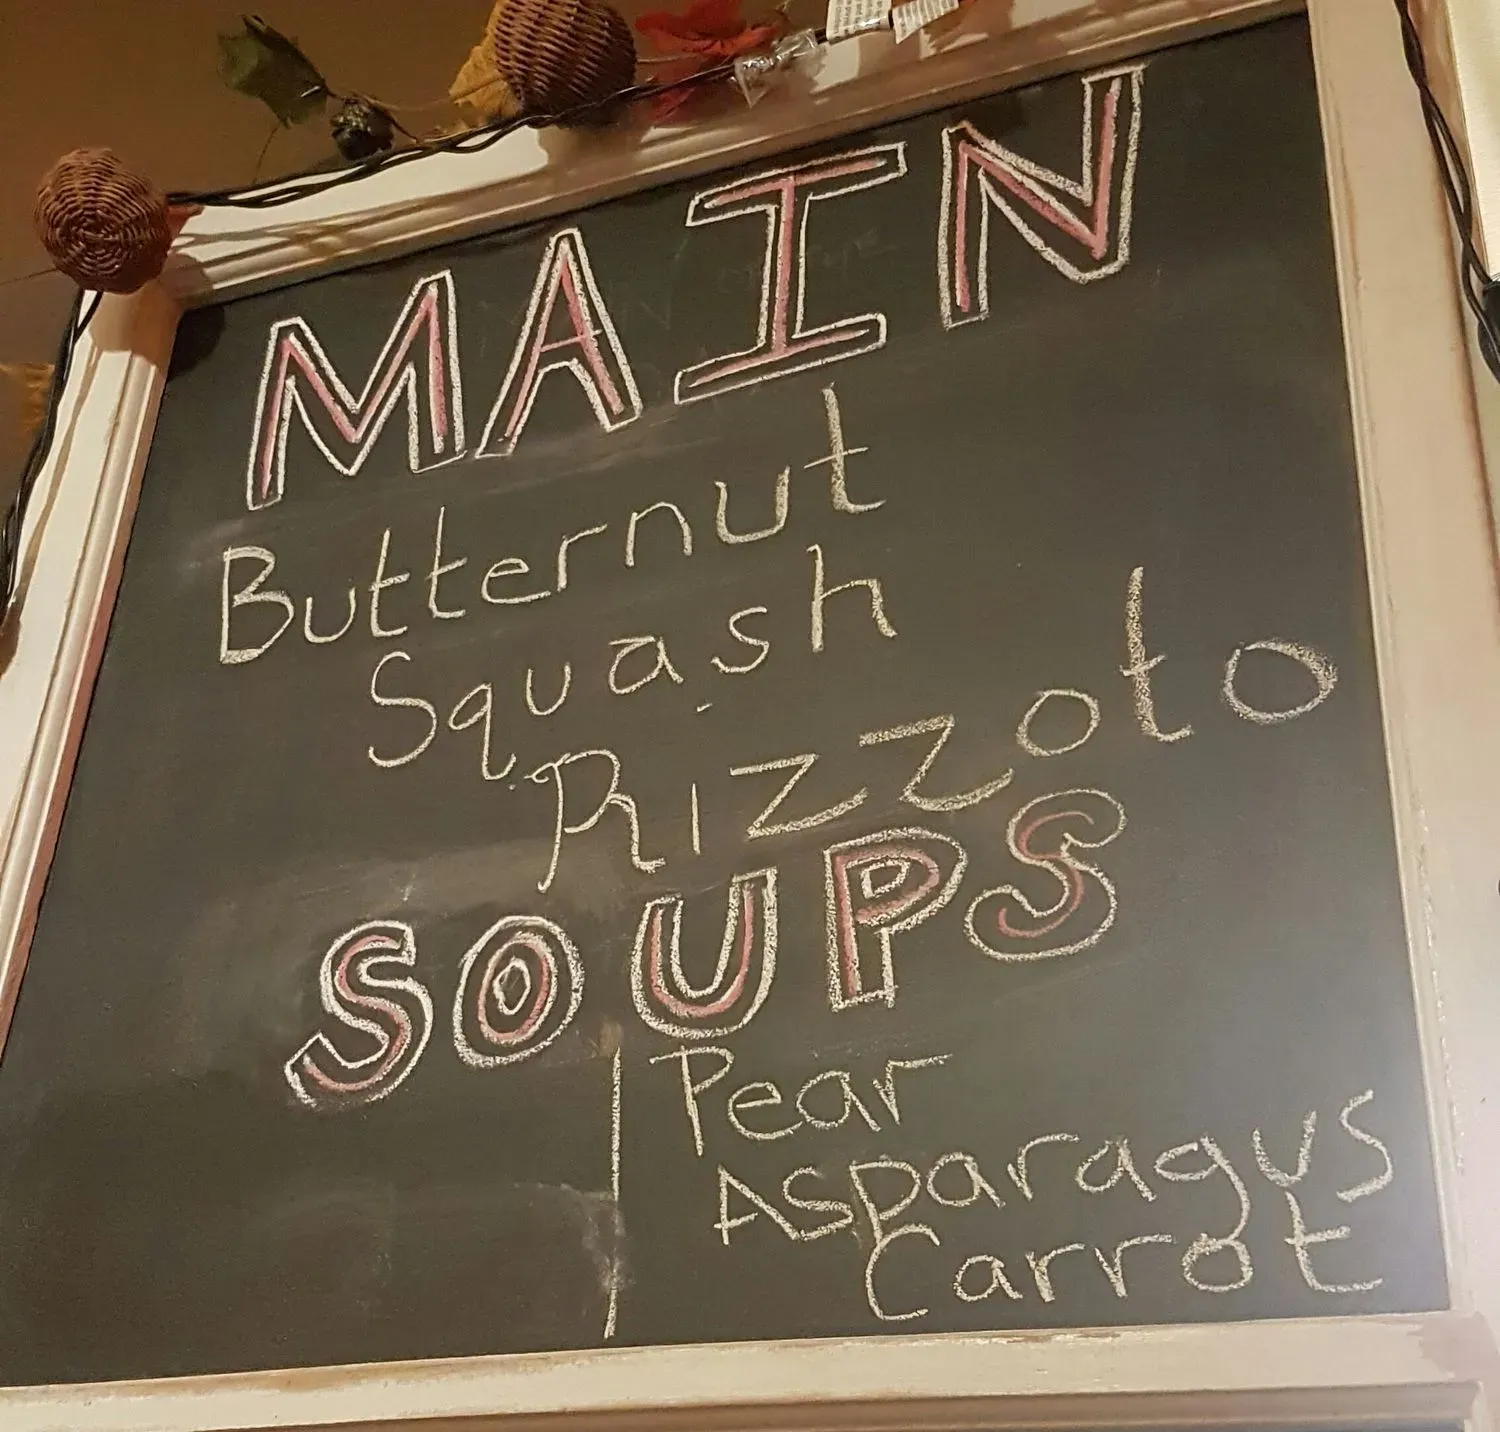 MAIN
Butternut
Squash
Rizzoto
SOUPS
Pear
Asparagus
Carrot